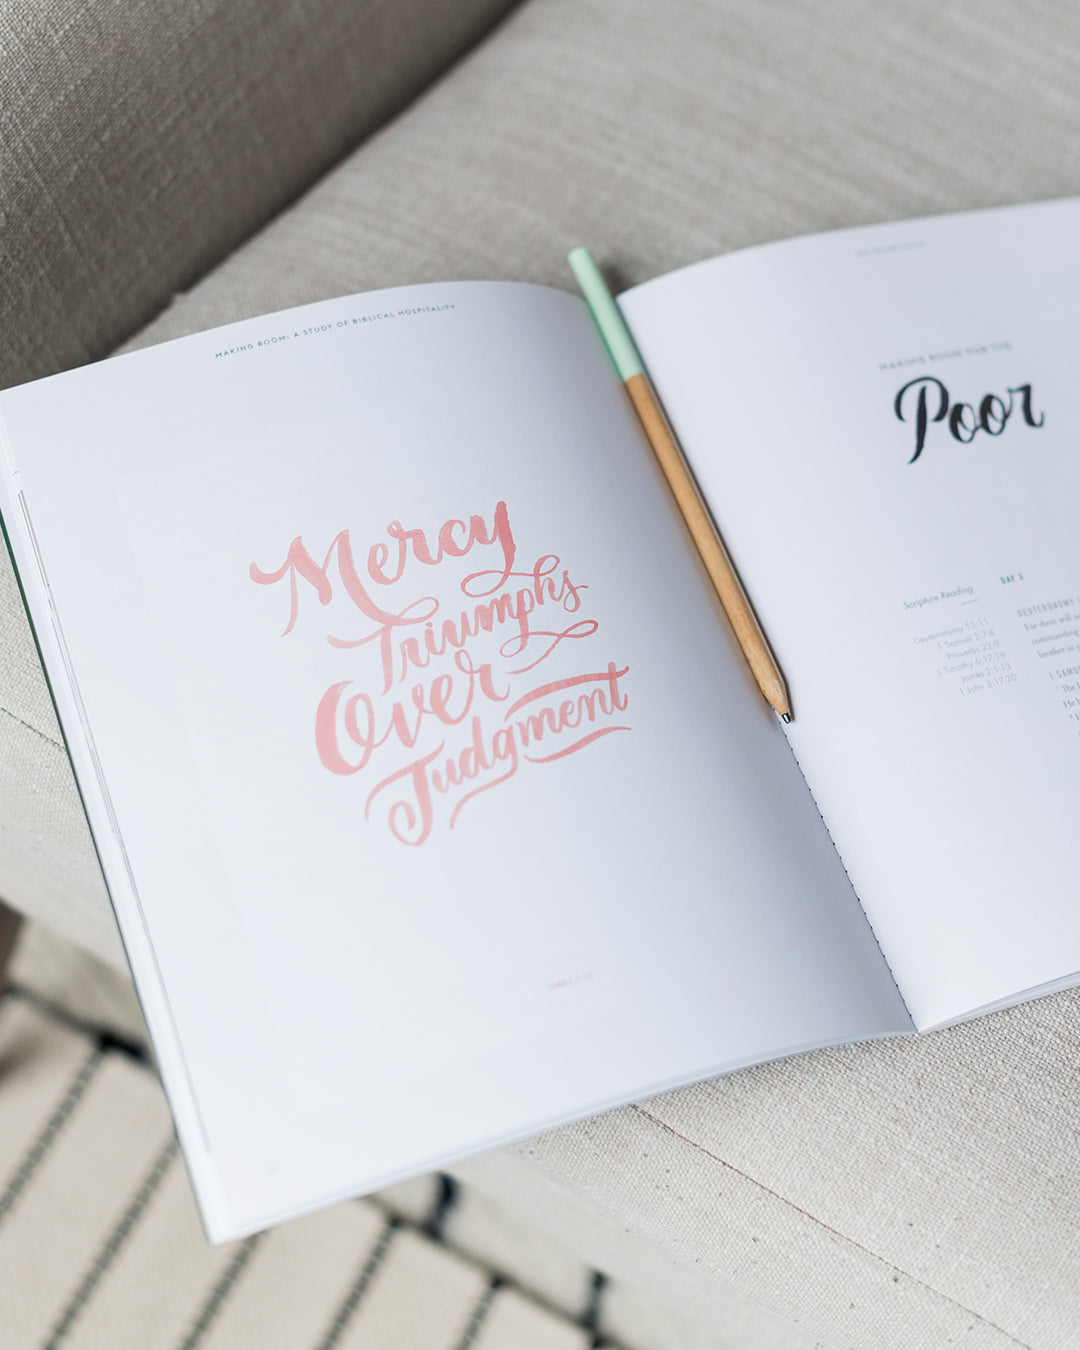 MAKING ROOM: A STUDY OF BIBLICAL HOSPITALITY
Mercy
Triumphs
Over
Judgment
MAKING ROOM FOR THE
Poor
Scripture Reading
Deuteronomy 15:11
1 Samuel 2:7-8
Proverbs 22:9
1 Timothy 6:17-19
James 2:1-13
1 John 3:17-20
DAY 3
DEUTERONOMY
For there will
commanding
brother in
1 SAMU
The
He